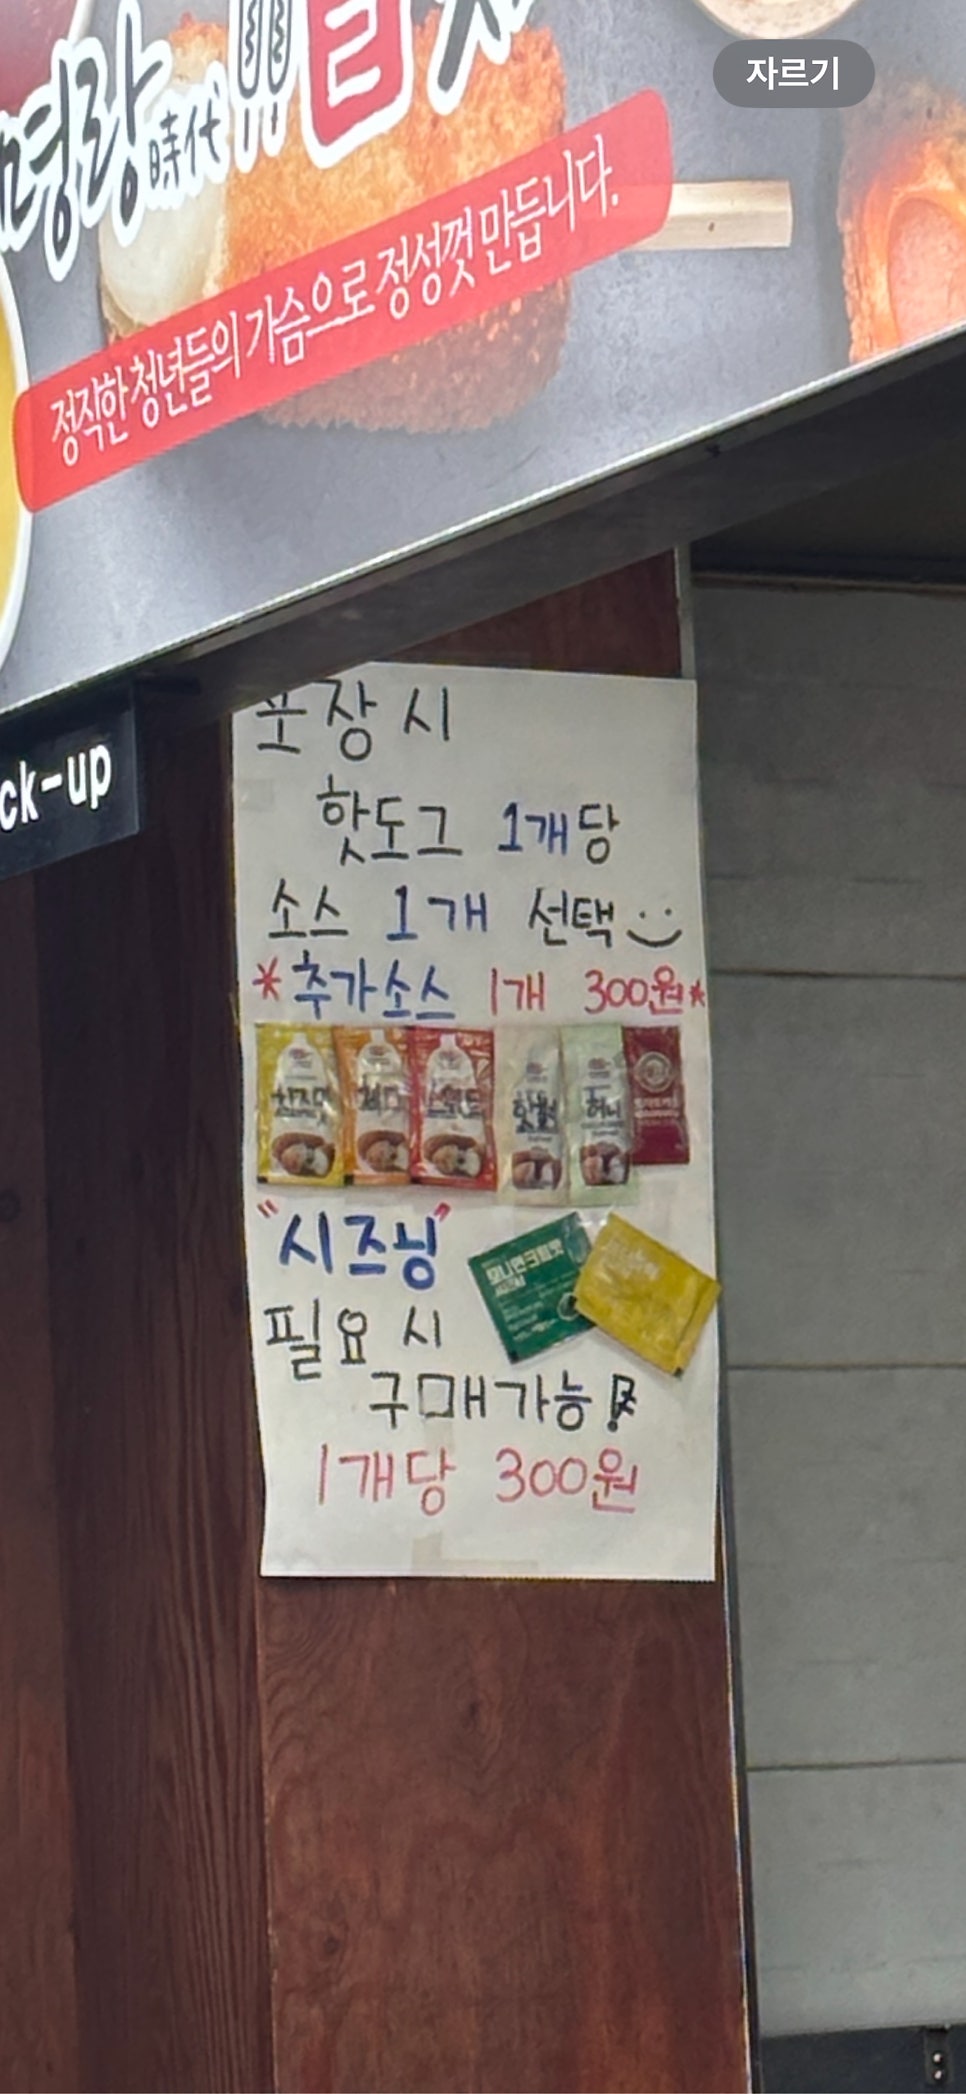 자르기
명랑時代
정직한 청년들의 가슴으로 정성껏 만듭니다.
ck-up
포장 시
핫도그 1개당
소스 1개 선택
*추가소스 1개 300원*
허니
"시즈닝"
필요 시
구매가능!
1개당 300원